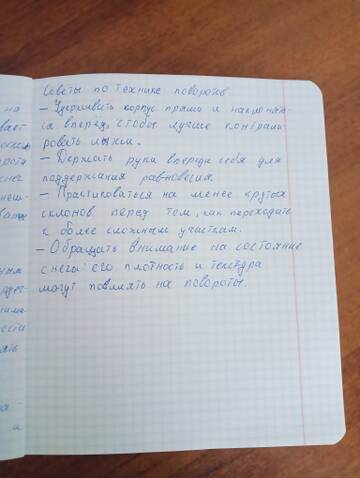 на
Советы по технике поворотов
– Удерживать корпус прямо и наклонят-
ся вперед, чтобы лучше контроли-
ровать лыжи.
– Держать руки впереди себя для
поддержания равновесия.
– Практиковаться на менее крутых
склонов перед тем, как переходить
к более сложным участкам.
– Обращать внимание на состояние
снега: его плотность и текстура
могут повлиять на повороты.
и